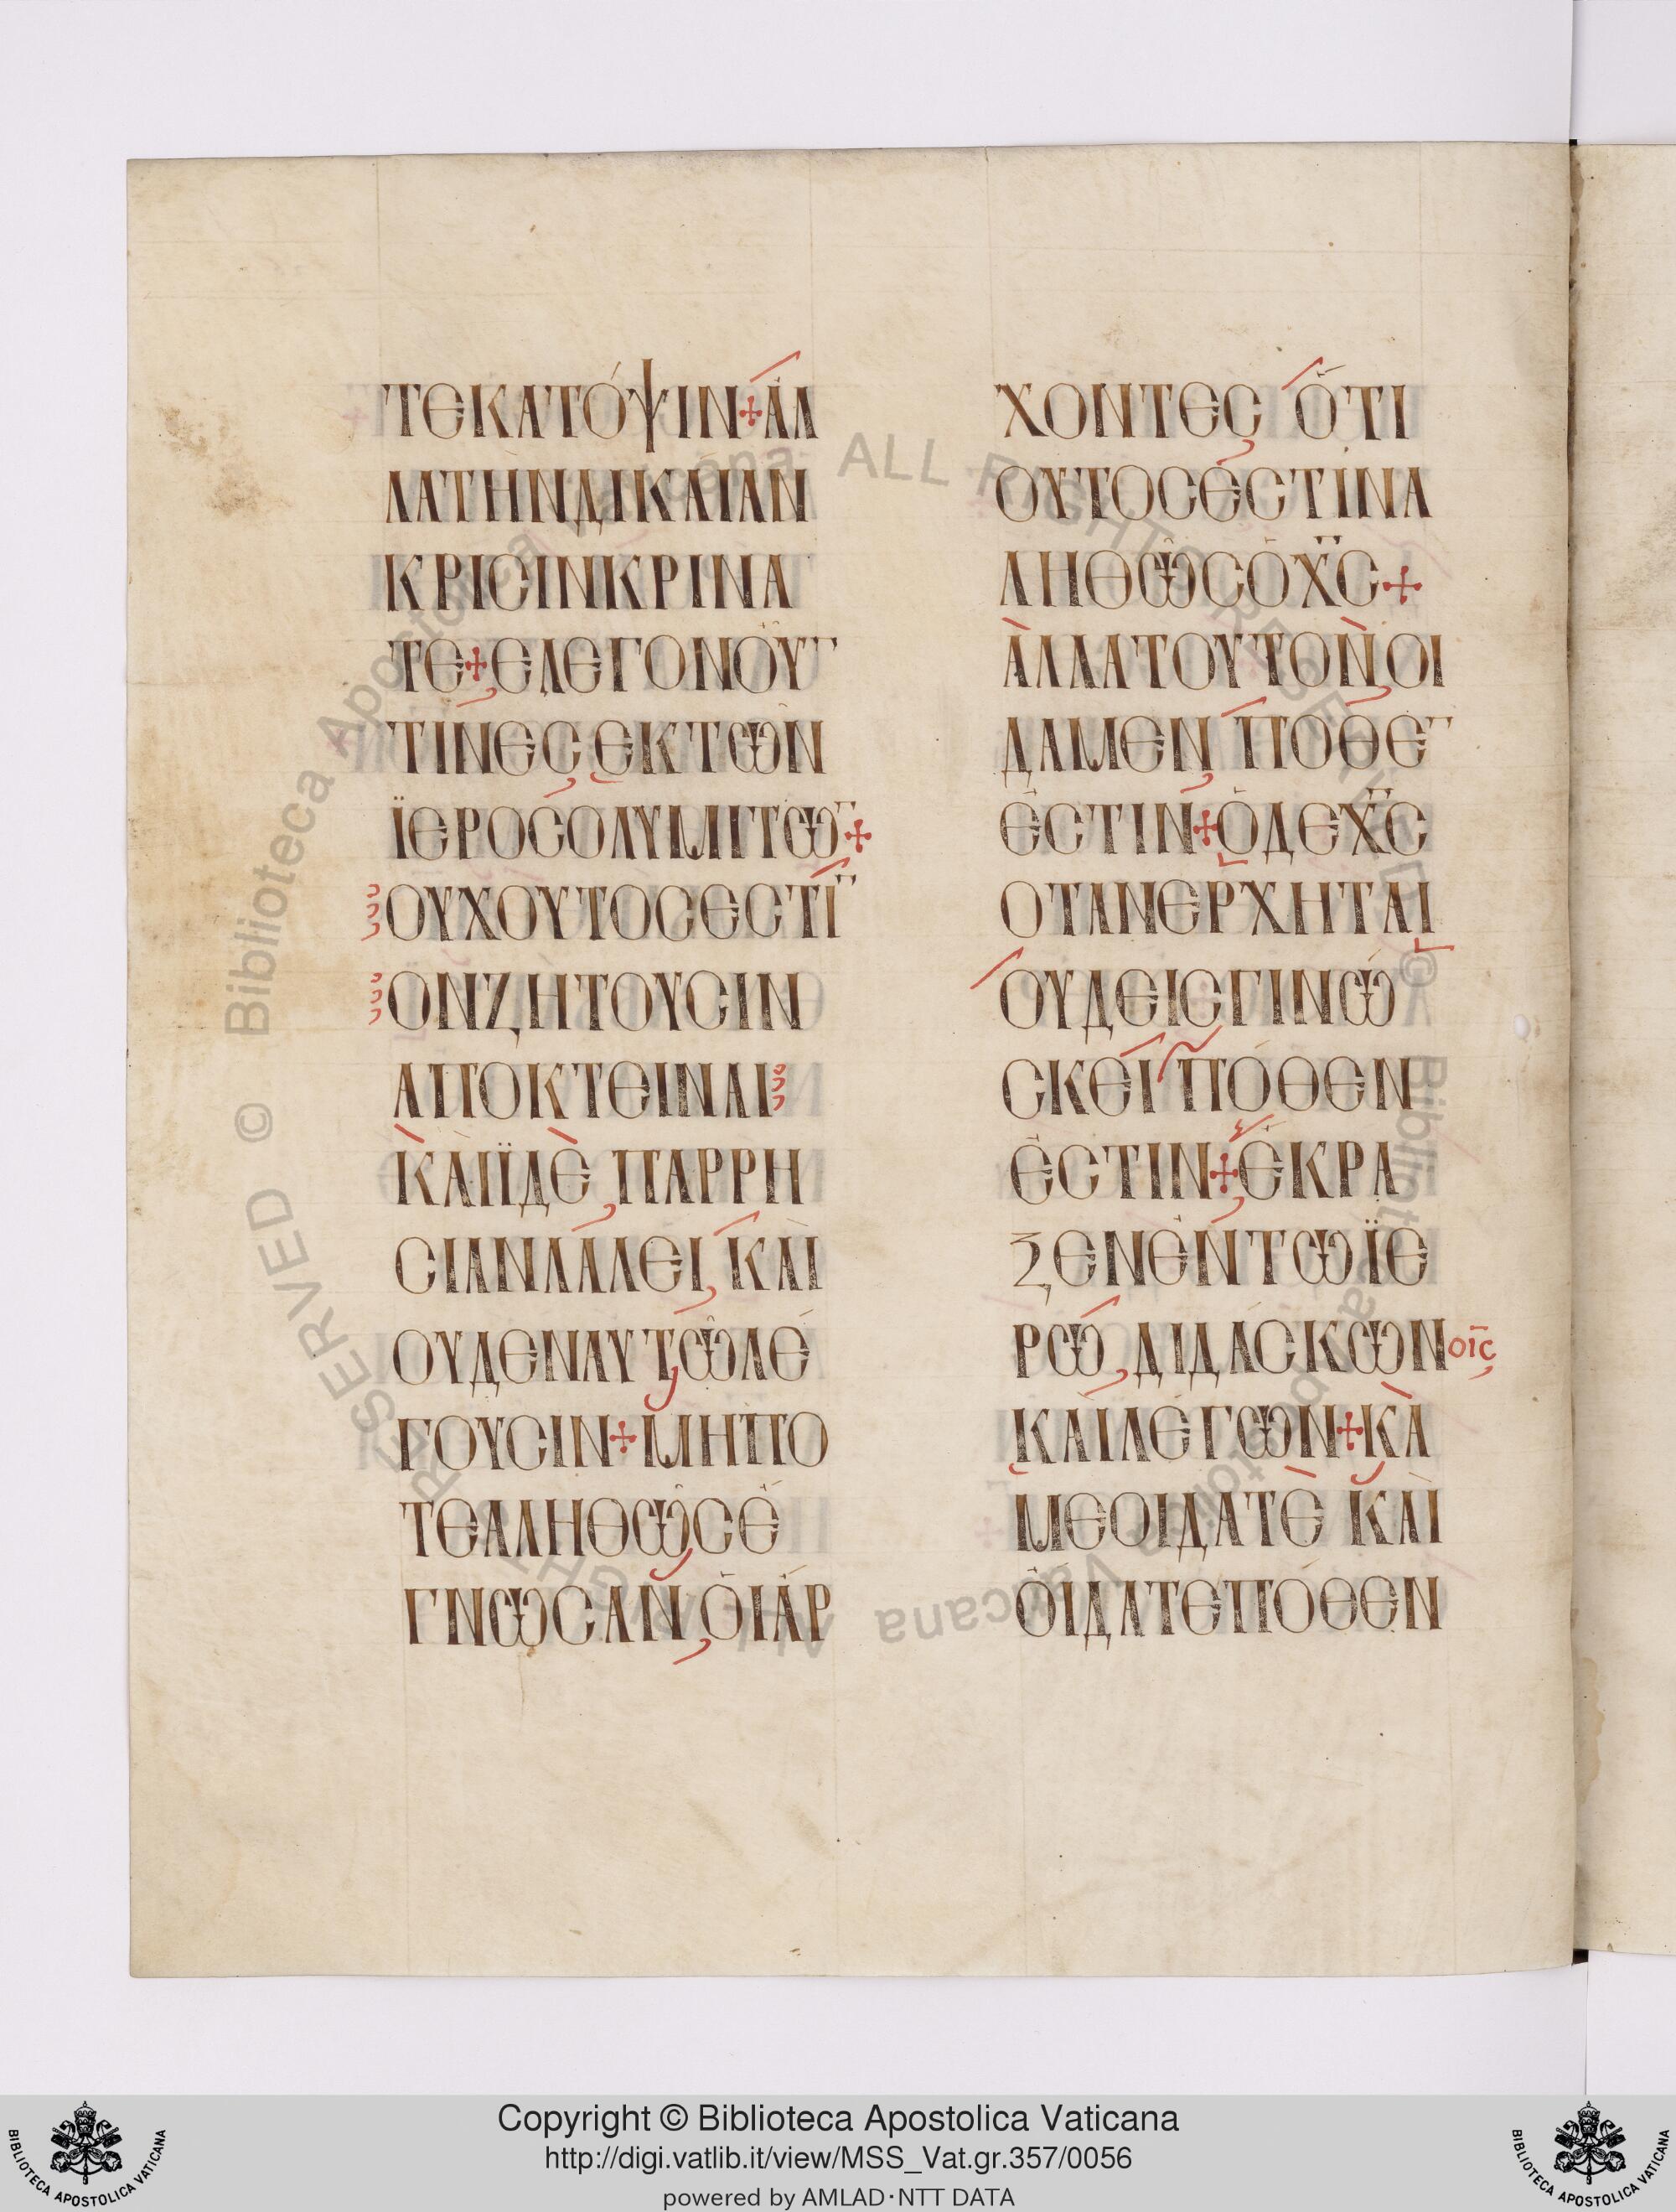 ΤΕΚΑΤΌΨΙΝ+ἈΛ
ΛΑΤΗΝΔΙΚΑΊΑΝ
ΚΡΙϹΙΝΚΡΙΝΑ
ΤΕ+ΕΛΕΓΟΝΟΥ̓
ΤΙΝΕϹΕΚΤΩ̂Ν
ΪΕΡΟϹΟΛΥΜΙΤΩ+
ΟΥΧΟΥΤΟϹΕϹΤΙ
ΟΝΖΗΤΟΥϹΙΝ
ΑΠΟΚΤΕΙΝΑΙ
ΚΑΙΪΔΕ ΠΑΡΡΗ
ϹΙΑΝΛΑΛΕΙ ΚΑΙ
ΟΥΔΕΝΑΥΤΩ̂ΛΕ
ΓΟΥϹΙΝ+ΜΗΠΟ
ΤΕΑΛΗΘΩ̂ϹΕ
ΓΝΩϹΑΝ ΟΙΑΡ
ΧΟΝΤΕϹ ὍΤΙ
ΟΥΤΟϹΕϹΤΙΝΑ
ΛΗΘΩ̂ϹΟΧ̅Ϲ+
ἈΛΛΑΤΟΥΤΟΝΟΙ
ΔΑΜΕΝ ΠΟΘΕ
ΕϹΤΙΝ+ΟΔΕΧ̅Ϲ
ΟΤΑΝΕΡΧΗΤΑΙ
ΟΥΔΕΙϹΓΙΝΩ
ϹΚΕΙ ΠΟΘΕΝ
ΕϹΤΙΝ+ΕΚΡΑ
ΖΕΝΕΝΤΩΪΕ
ΡΩ ΔΙΔΑϹΚΩΝΟΙϹ
ΚΑΙΛΕΓΩΝ+ΚΑ
ΜΕΟΙΔΑΤΕ ΚΑΙ
ΟΙΔΑΤΕΠΟΘΕΝ
© Biblioteca Apostolica Vaticana ALL RIGHTS RESERVED
Copyright © Biblioteca Apostolica Vaticana
http://digi.vatlib.it/view/MSS_Vat.gr.357/0056
powered by AMLAD·NTT DATA
BIBLIOTECA APOSTOLICA VATICANA
BIBLIOTECA APOSTOLICA VATICANA